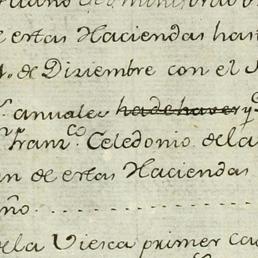 de estas Haciendas has
de Diziembre con el S
s. anuales hade haver y
n Franz.co Celedonio de la
an de estas Haciendas
ño.
de la Viesca primer Ca